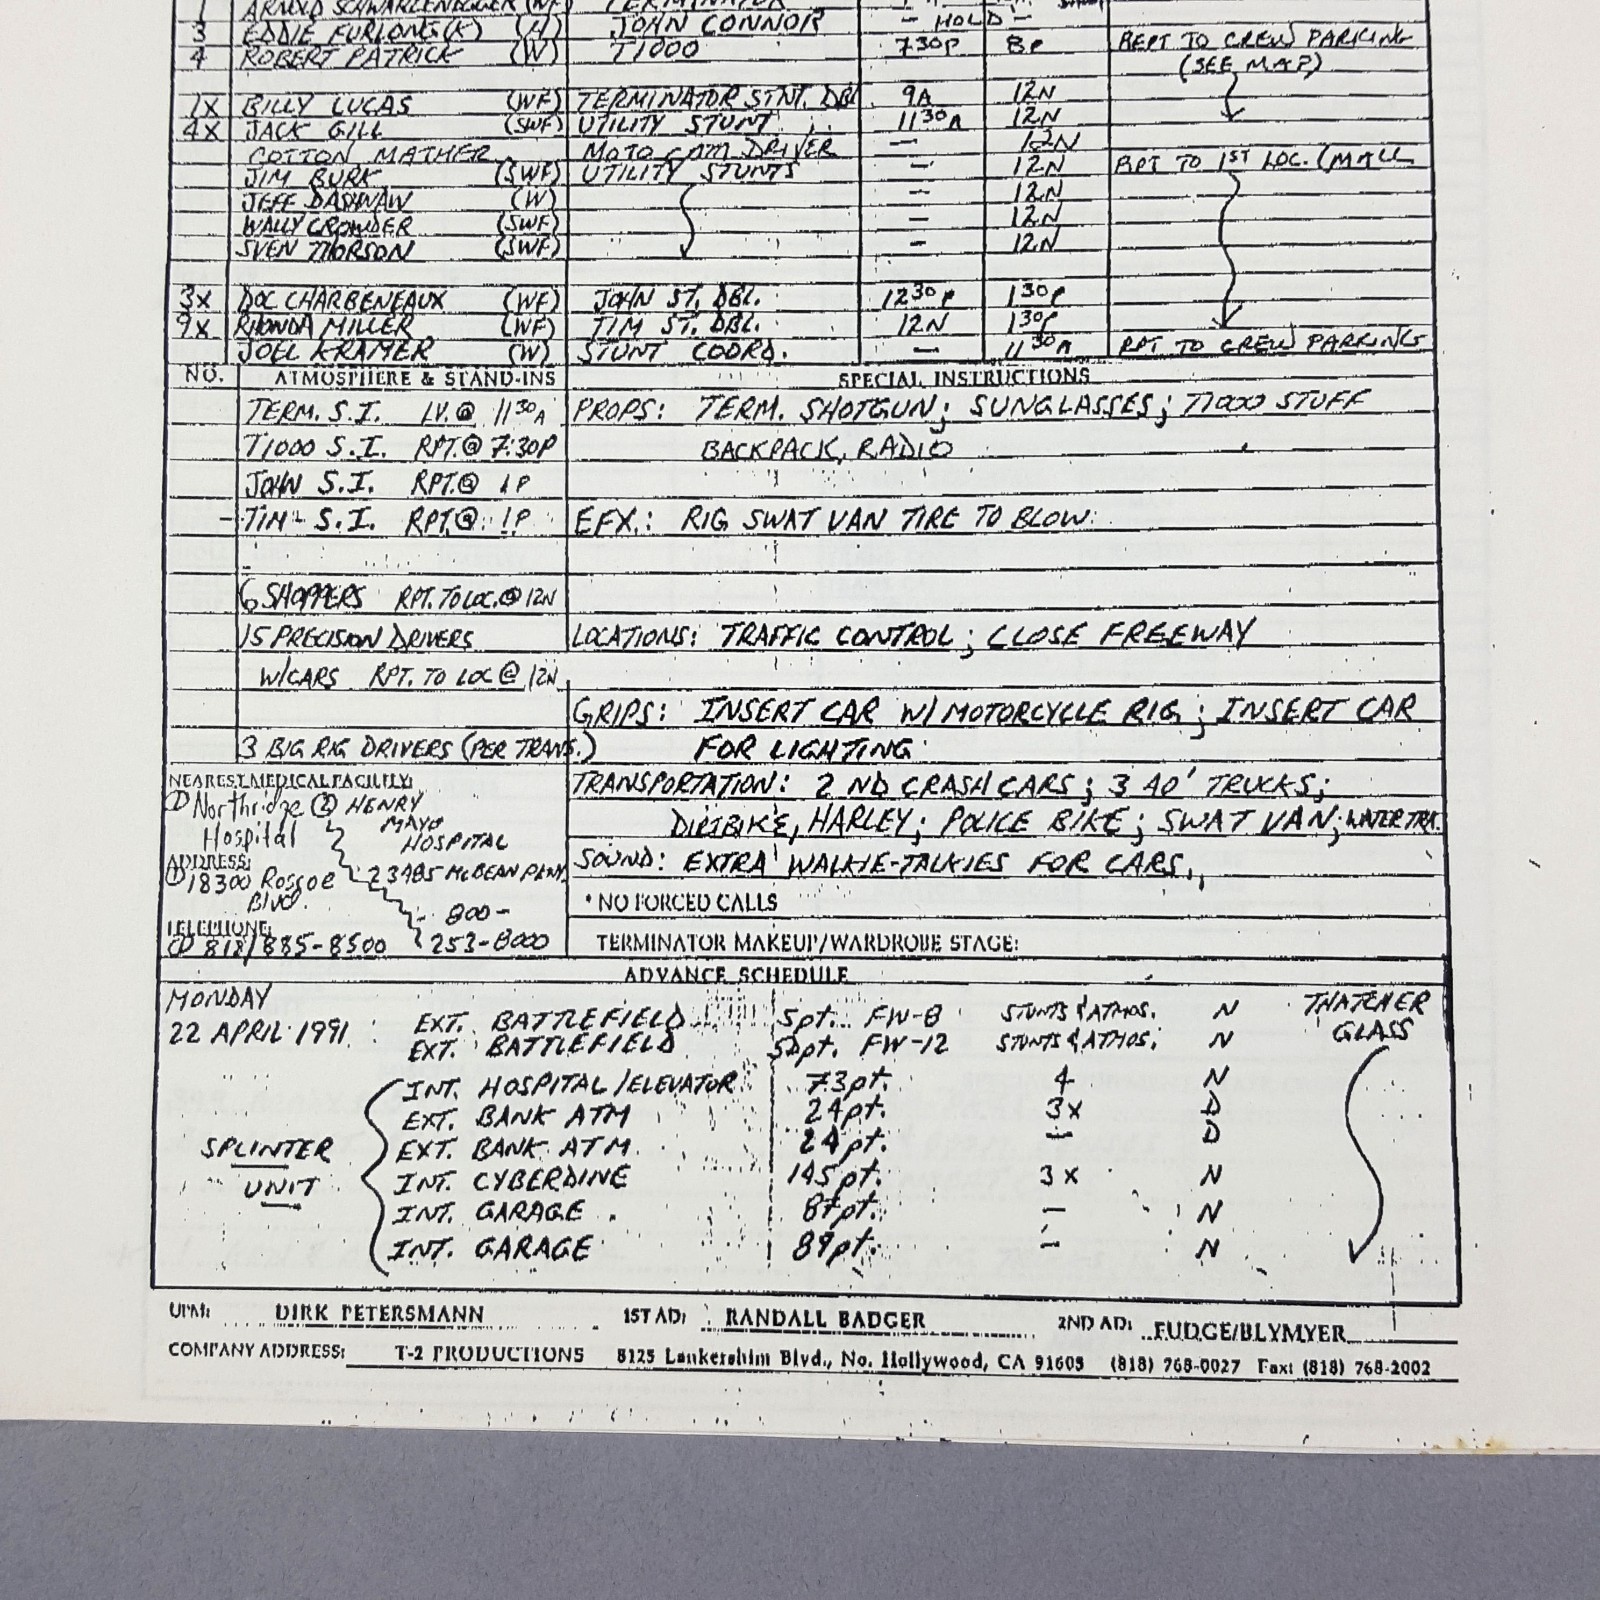 1 ARNOLD SCHWARZENEGGER (WF) TERMINATOR
3 EDDIE FURLONG (K) (H) JOHN CONNOR - HOLD -
4 ROBERT PATRICK (W) T1000 730P 8P REPT TO CREW PARKING
(SEE MAP)
1X BILLY LUCAS (WF) TERMINATOR STNT. DBL 9A 12N
4X JACK GILL (SWF) UTILITY STUNT 1130A 12N
COTTON MATHER MOTO CAM DRIVER — 12N
JIM BURK (SWF) UTILITY STUNTS - 12N RPT TO 1ST LOC. (MALL
JEFF DASHNAW (W) - 12N
WALLY CROWDER (SWF) - 12N
SVEN THORSON (SWF) - 12N
3X DOC CHARBENEAUX (WF) JOHN ST. DBL. 1230P 130P
9X RHONDA MILLER (WF) TIM ST. DBL. 12N 130P
JOEL KRAMER (W) STUNT COORD. — 1130A RPT TO CREW PARKING
NO. ATMOSPHERE & STAND-INS SPECIAL INSTRUCTIONS
TERM. S.I. LV.@ 1130A PROPS: TERM. SHOTGUN; SUNGLASSES; T1000 STUFF
T1000 S.I. RPT.@ 7:30P BACKPACK, RADIO
JOHN S.I. RPT.@ 1P
TIM S.I. RPT.@ 1P EFX.: RIG SWAT VAN TIRE TO BLOW.
6 SHOPPERS RPT. TO LOC.@ 12N
15 PRECISION DRIVERS LOCATIONS: TRAFFIC CONTROL; CLOSE FREEWAY
W/CARS RPT. TO LOC @ 12N
GRIPS: INSERT CAR W/ MOTORCYCLE RIG; INSERT CAR
3 BIG RIG DRIVERS (PER TRANS.) FOR LIGHTING
NEAREST MEDICAL FACILITY: TRANSPORTATION: 2 ND CRASH CARS; 3 40' TRUCKS;
① Northridge ② HENRY
Hospital MAYO HOSPITAL DIRTBIKE, HARLEY; POLICE BIKE; SWAT VAN; WATER TRK.
ADDRESS: SOUND: EXTRA WALKIE-TALKIES FOR CARS.
① 18300 Roscoe Blvd. 23485 McBEAN PKWY
800- * NO FORCED CALLS
TELEPHONE:
① 818/885-8500 253-8000 TERMINATOR MAKEUP/WARDROBE STAGE:
ADVANCE SCHEDULE
MONDAY
22 APRIL 1991 EXT. BATTLEFIELD 5pt. FW-8 STUNTS & ATMOS. N THATCHER
EXT. BATTLEFIELD 5Dpt. FW-12 STUNTS & ATMOS. N GLASS
INT. HOSPITAL/ELEVATOR 73pt. 4 N
EXT. BANK ATM 24pt. 3X D
SPLINTER EXT. BANK ATM 24pt. — D
UNIT INT. CYBERDINE 145pt. 3X N
INT. GARAGE 87pt. — N
INT. GARAGE 89pt. — N
UPM: DIRK PETERSMANN 1ST AD: RANDALL BADGER 2ND AD: FUDGE/BLYMYER
COMPANY ADDRESS: T-2 PRODUCTIONS 8125 Lankershim Blvd., No. Hollywood, CA 91605 (818) 768-0027 Fax: (818) 768-2002